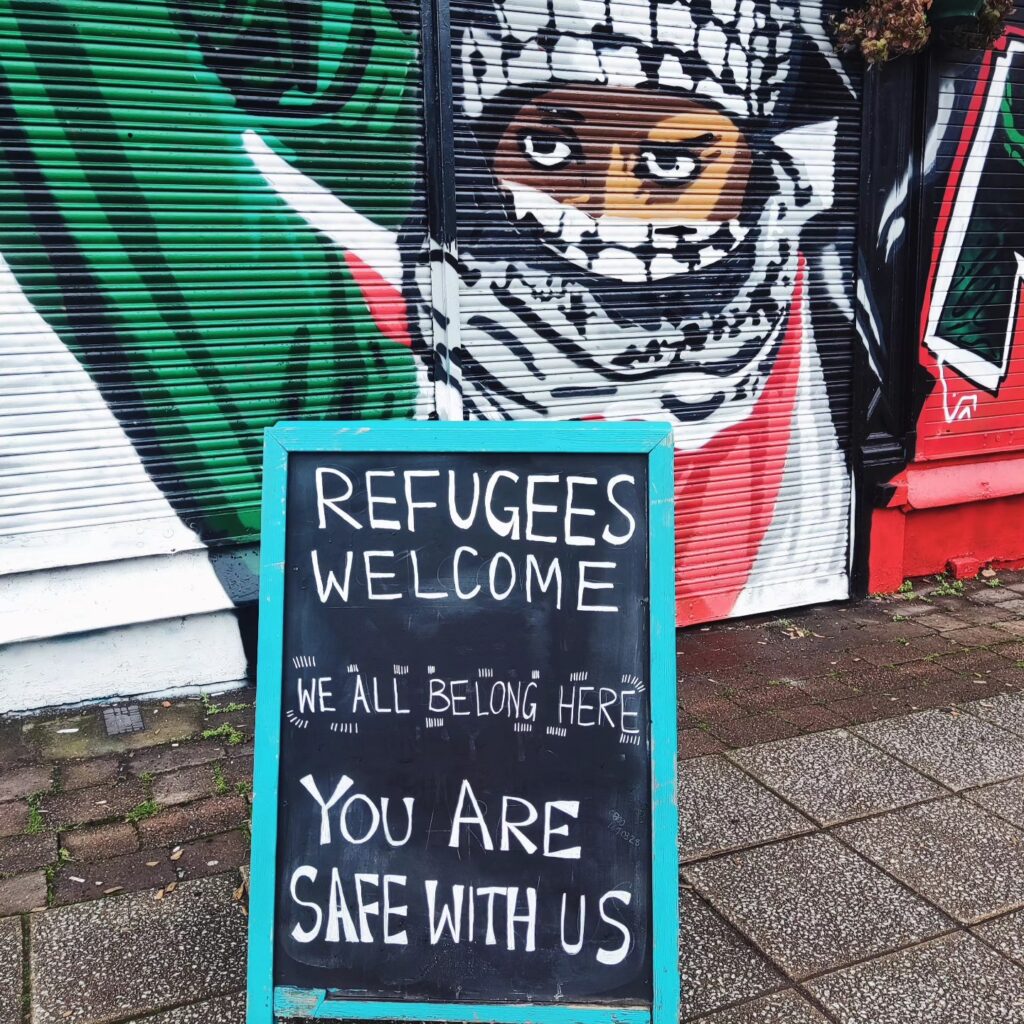 REFUGEES
WELCOME
WE ALL BELONG HERE
YOU ARE
SAFE WITH US